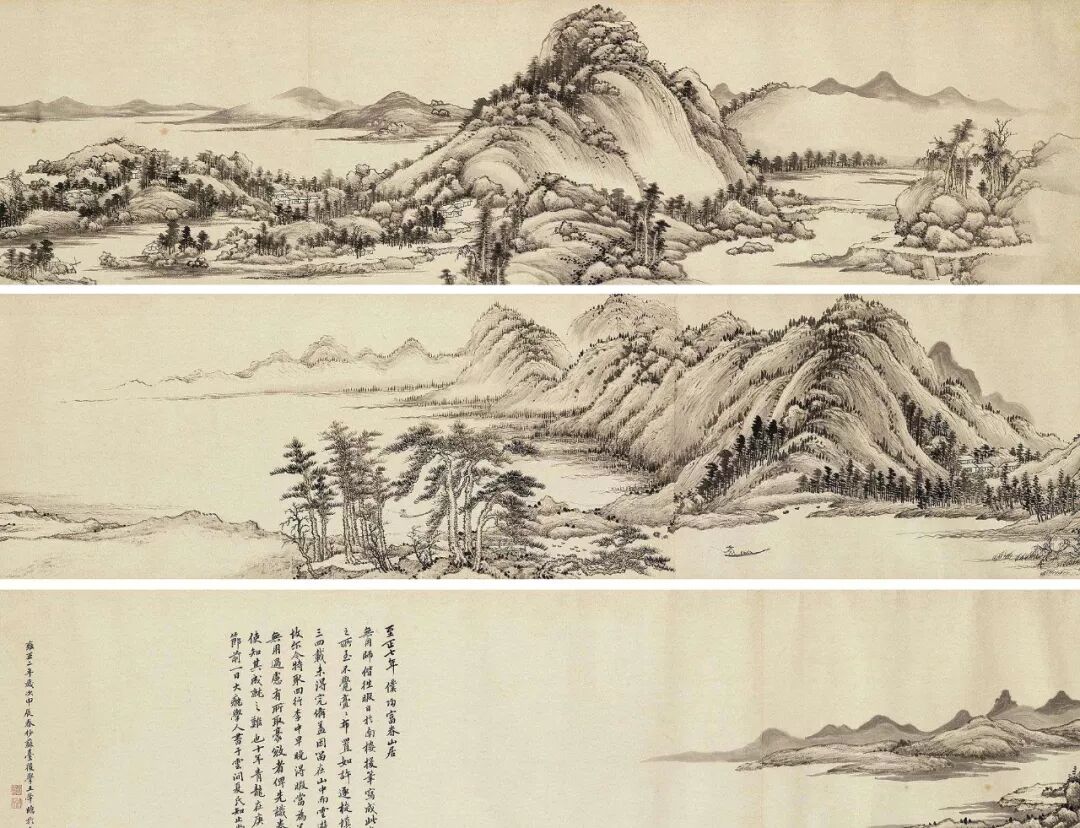 至正七年僕歸富春山居
無用師偕往暇日於南樓援筆寫成此
之所至不覺亹〻布置如許逐旋填
三四載未得完備蓋因留在山中而雲遊
故尔今特取回行李中早晚得暇當為
無用過慮有所取豪敓者俾先識卷
使知其成就之難也十年青龍在庚
節前一日大癡學人書于雲間夏氏知止
雍正二年歲次甲辰春杪蘇臺後學王